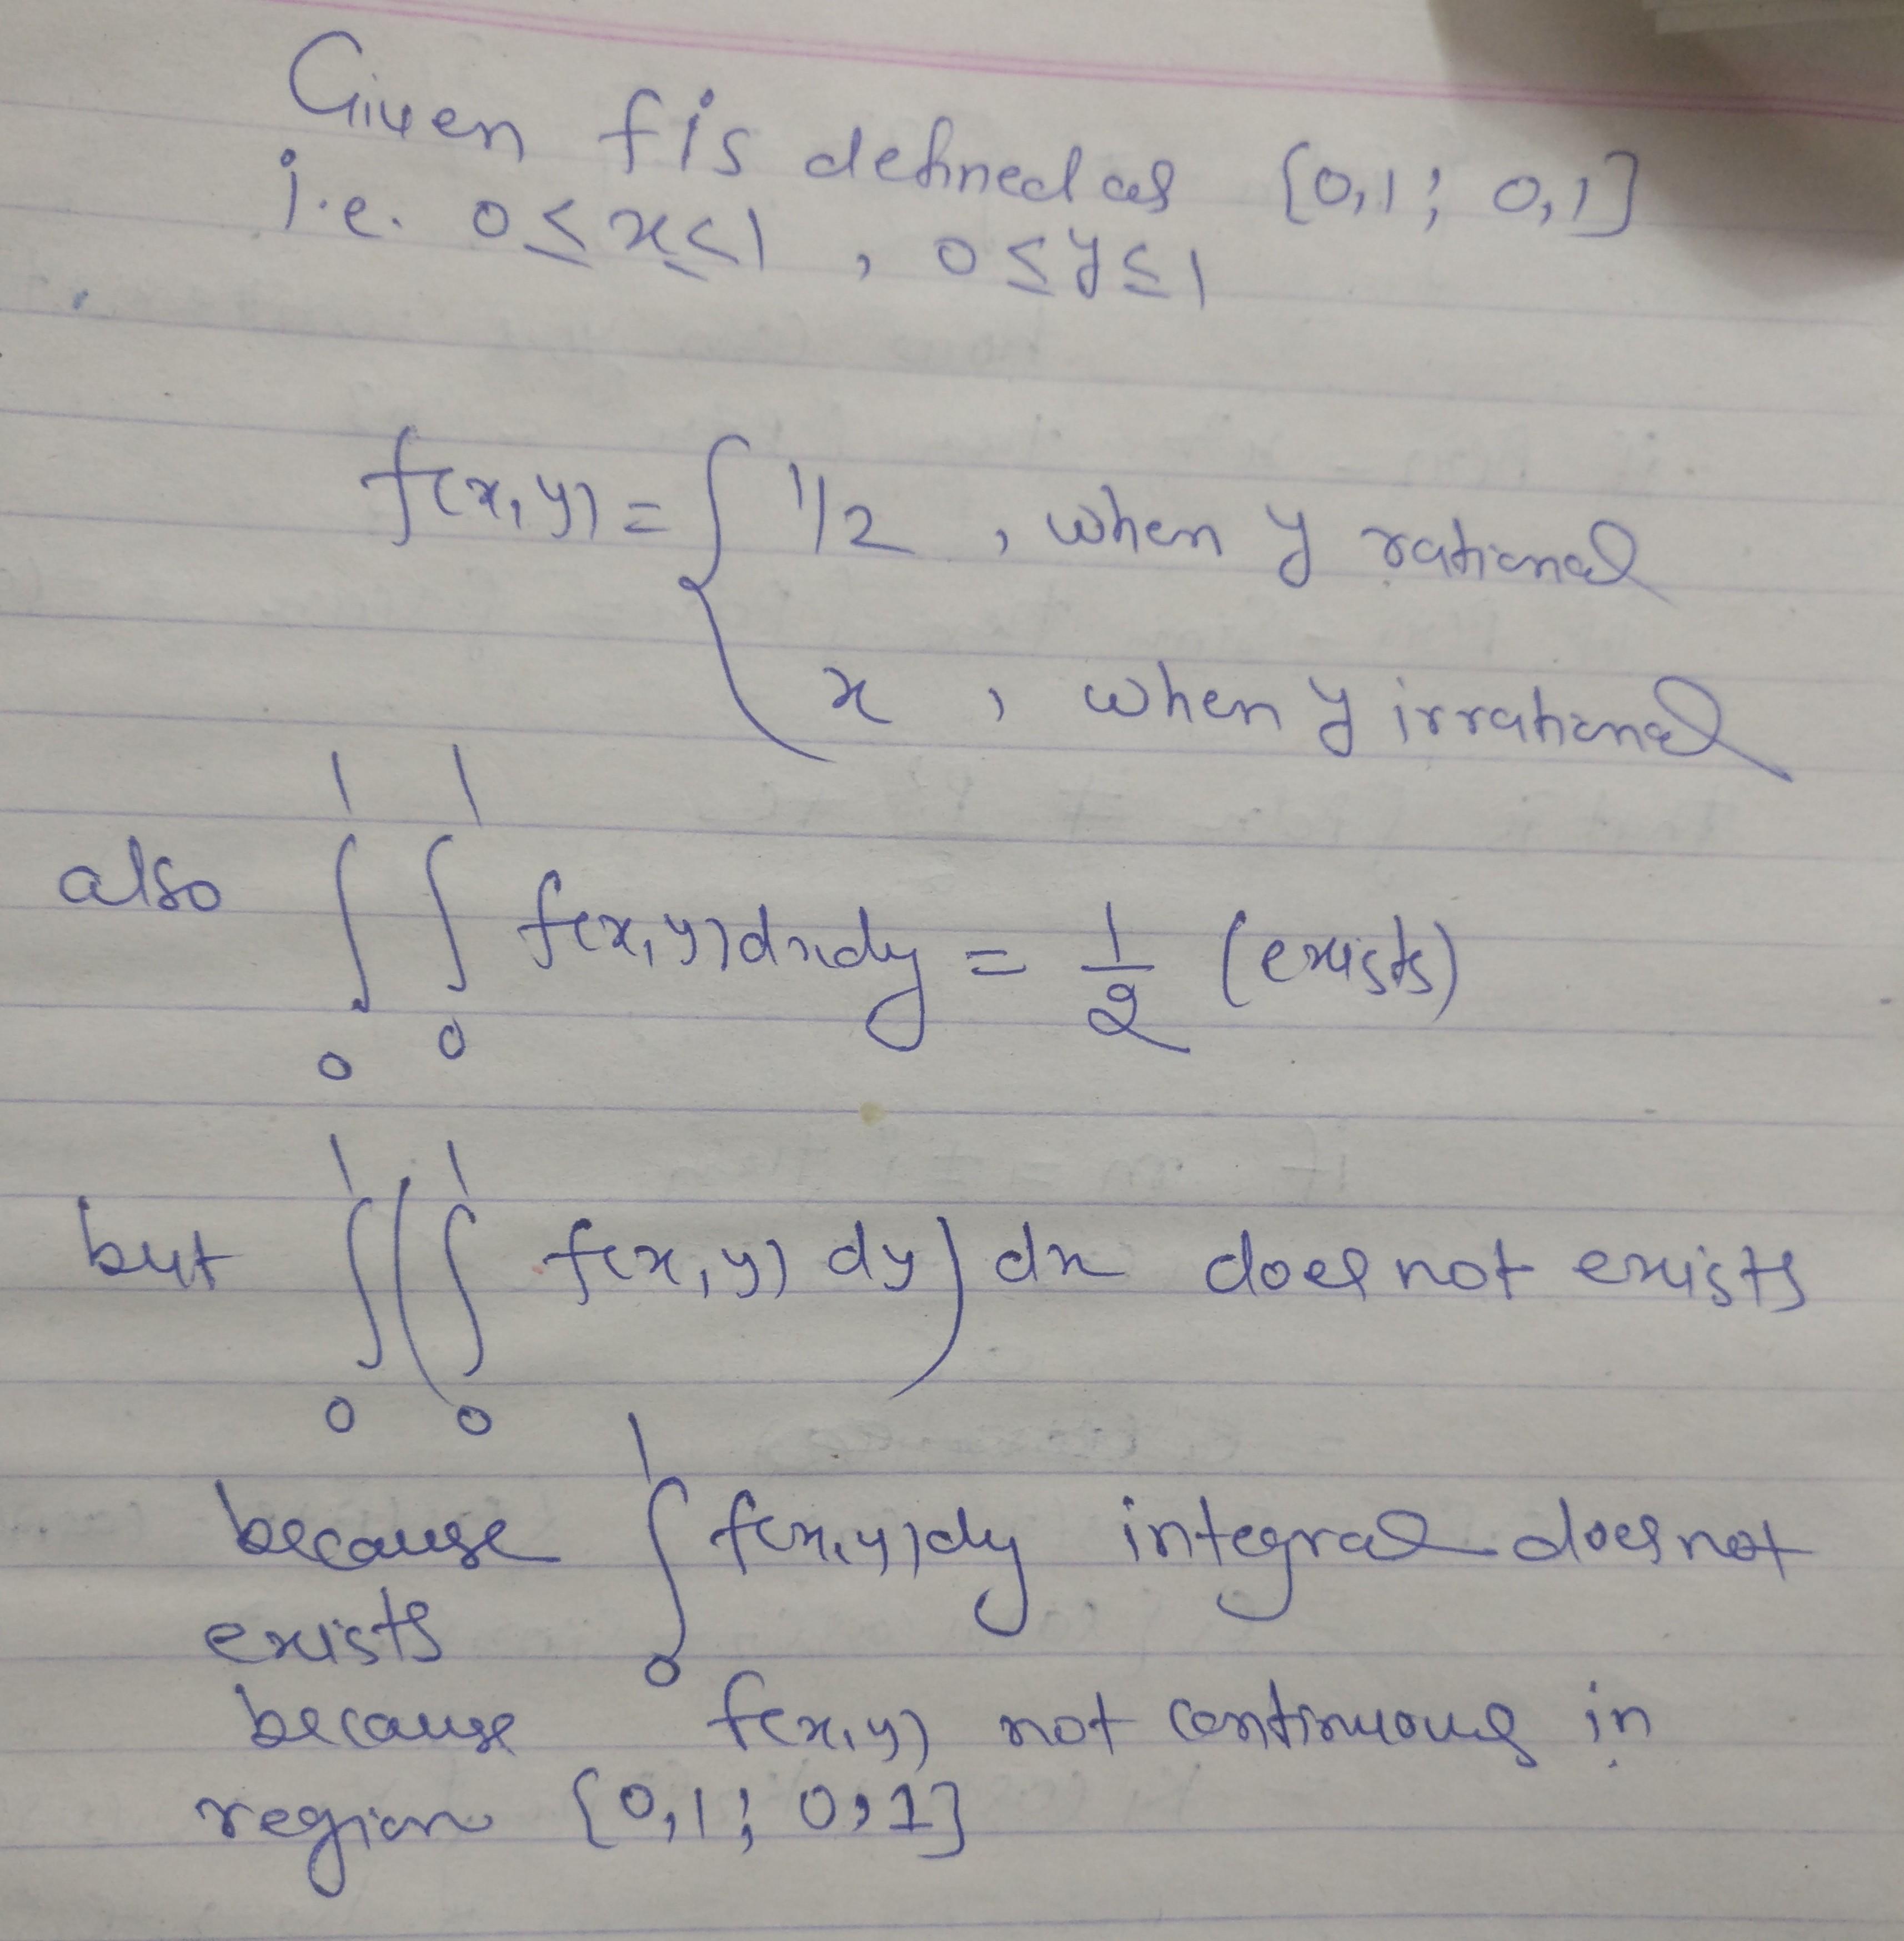 Given f is defined as [0,1; 0,1]
i.e. 0≤x≤1, 0≤y≤1
f(x,y) = { 1/2, when y rational
x, when y irrational
also ∫₀¹ ∫₀¹ f(x,y)dxdy = 1/2 (exists)
but ∫₀¹ (∫₀¹ f(x,y) dy) dx does not exists
because ∫₀¹ f(x,y)dy integral does not
exists
because f(x,y) not continuous in
region [0,1; 0,1]